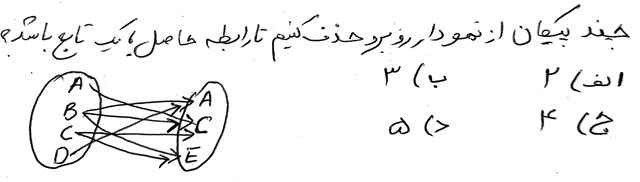 چند پیکان از نمودار روبرو حذف کنیم تا رابطه حاصل یک تابع باشد؟
الف) ۲ ب) ۳
ج) ۴ د) ۵
A A
B C
C E
D